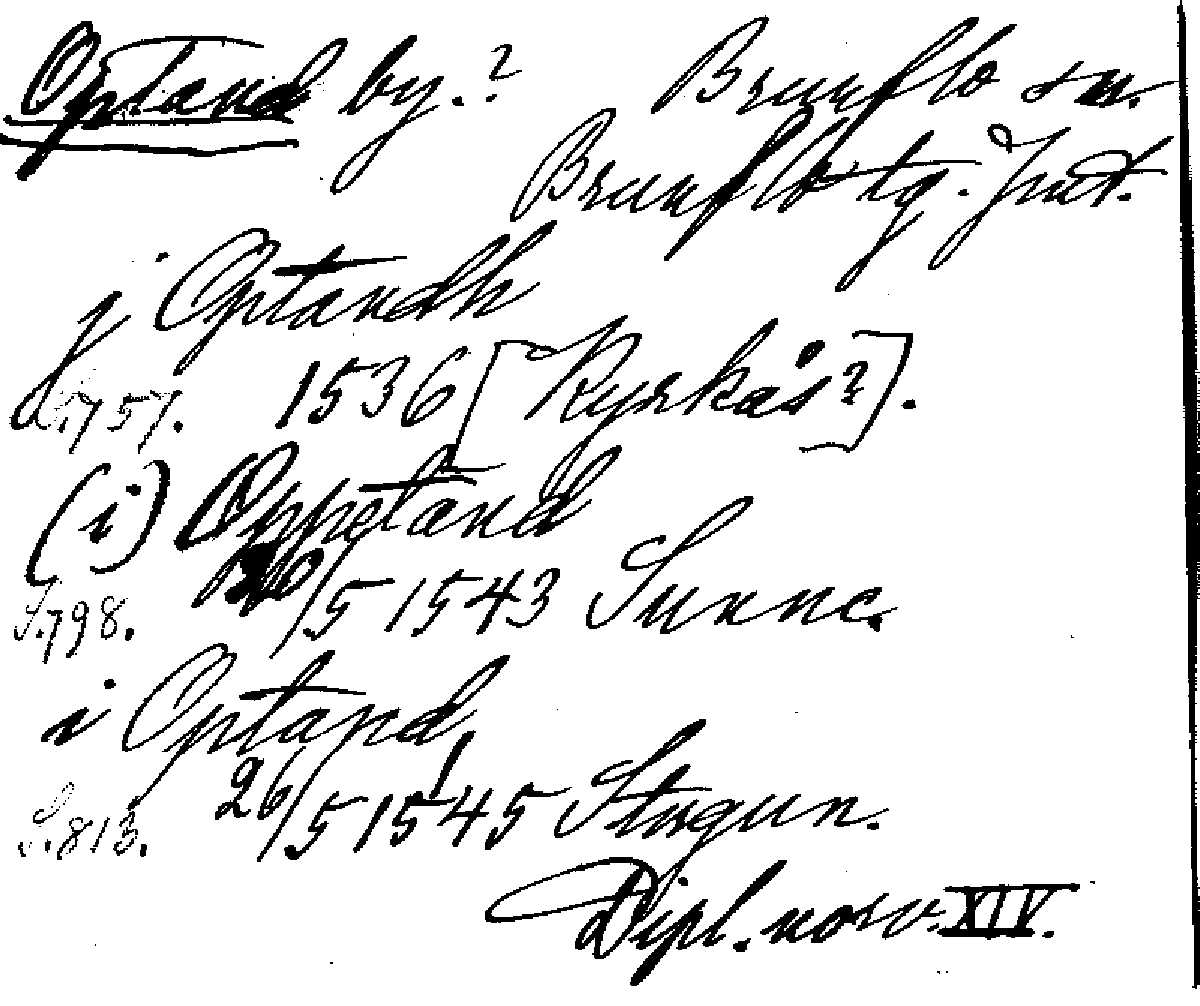 Optand by.? Brunflo sn.
Brunflo tg. Jmt.
j Optandh
S. 757. 1536 [Kyrkås?].
(i) Oppetand
S. 798. /5 1543 Sunne.
i Optand
S. 813. 26/5 1545 Stugun.
Dipl. norv. XIV.